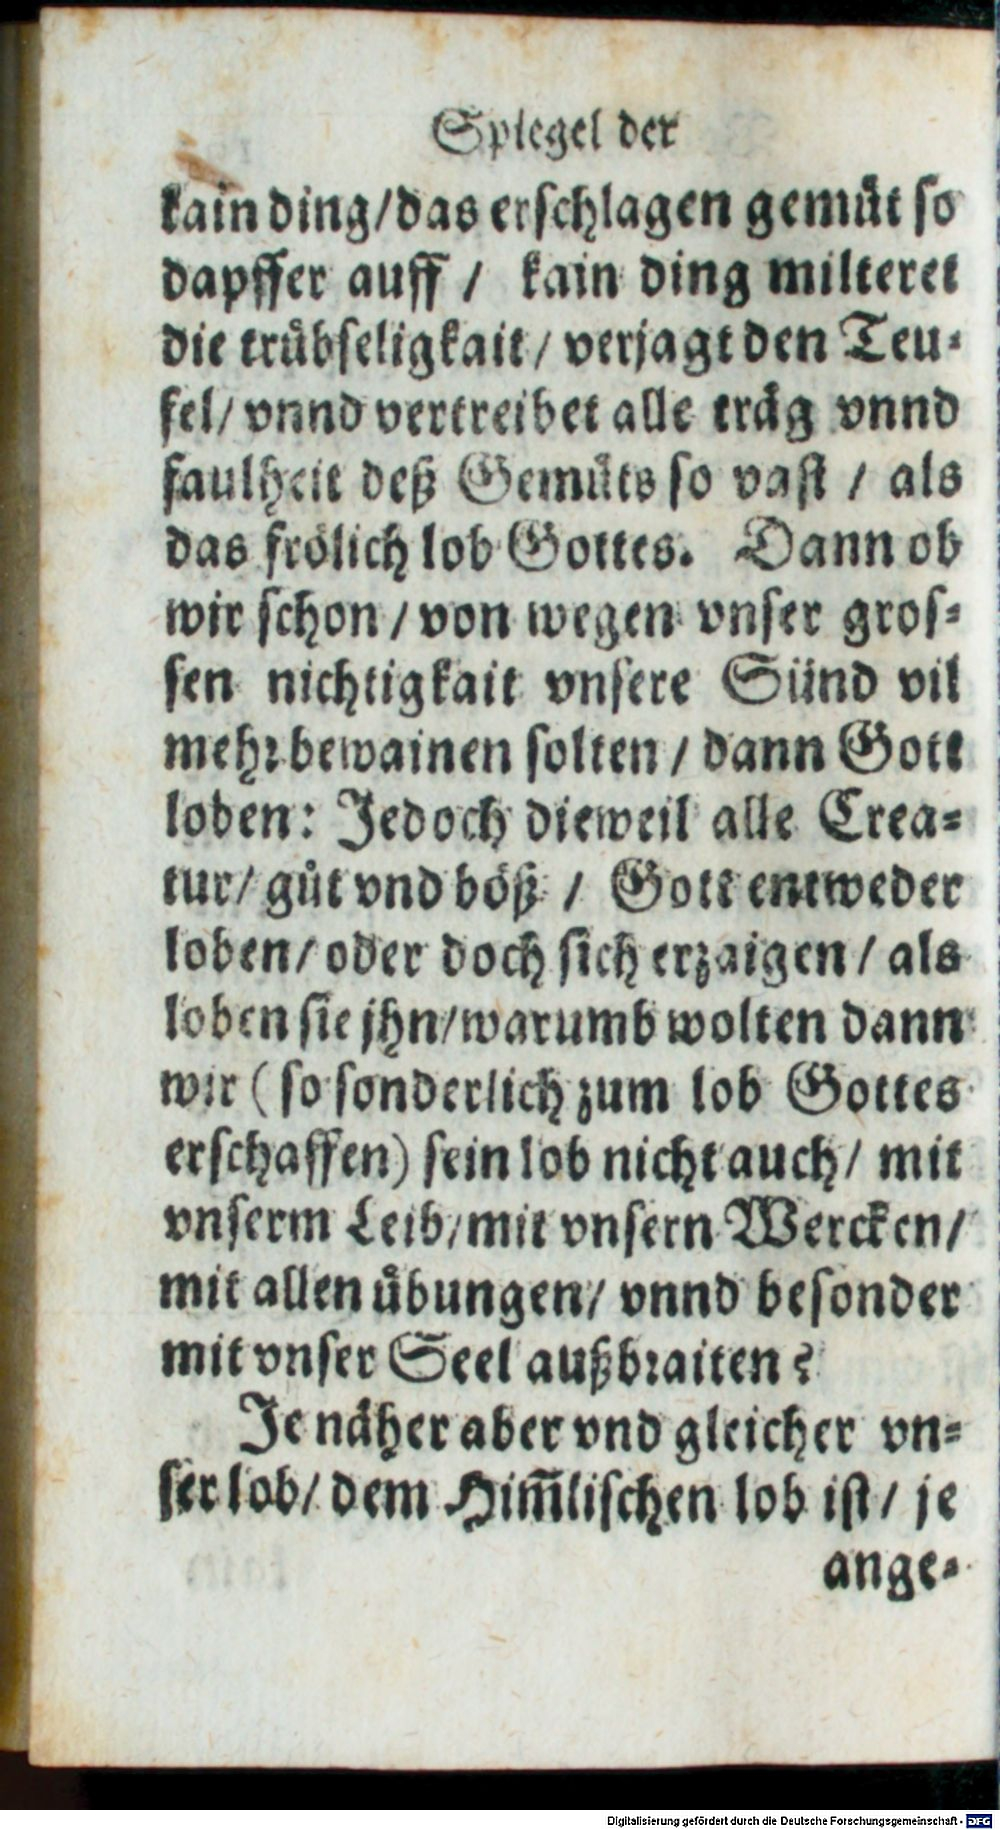 Spiegel der
kain ding/das erschlagen gemüt so
dapffer auff / kain ding milteret
die trůbseligkait/ verjagt den Teu-
fel/ vnnd vertreibet alle träg vnnd
faulheit deß Gemüts so vast / als
das frölich lob Gottes. Dann ob
wir schon / von wegen vnser gros-
sen nichtigkait vnsere Sünd vil
mehr bewainen solten / dann Gott
loben: Jedoch dieweil alle Crea-
tur/ gůt vnd böß / Gott entweder
loben/ oder doch sich erzaigen / als
loben sie jhn/warumb wolten dann
wir ( so sonderlich zum lob Gottes
erschaffen) sein lob nicht auch/ mit
vnserm Leib/mit vnsern Wercken/
mit allen übungen/ vnnd besonder
mit vnser Seel außbraiten?
Je näher aber vnd gleicher vn-
ser lob/ dem Him̃lischen lob ist/ je
ange-
Digitalisierung gefördert durch die Deutsche Forschungsgemeinschaft - DFG